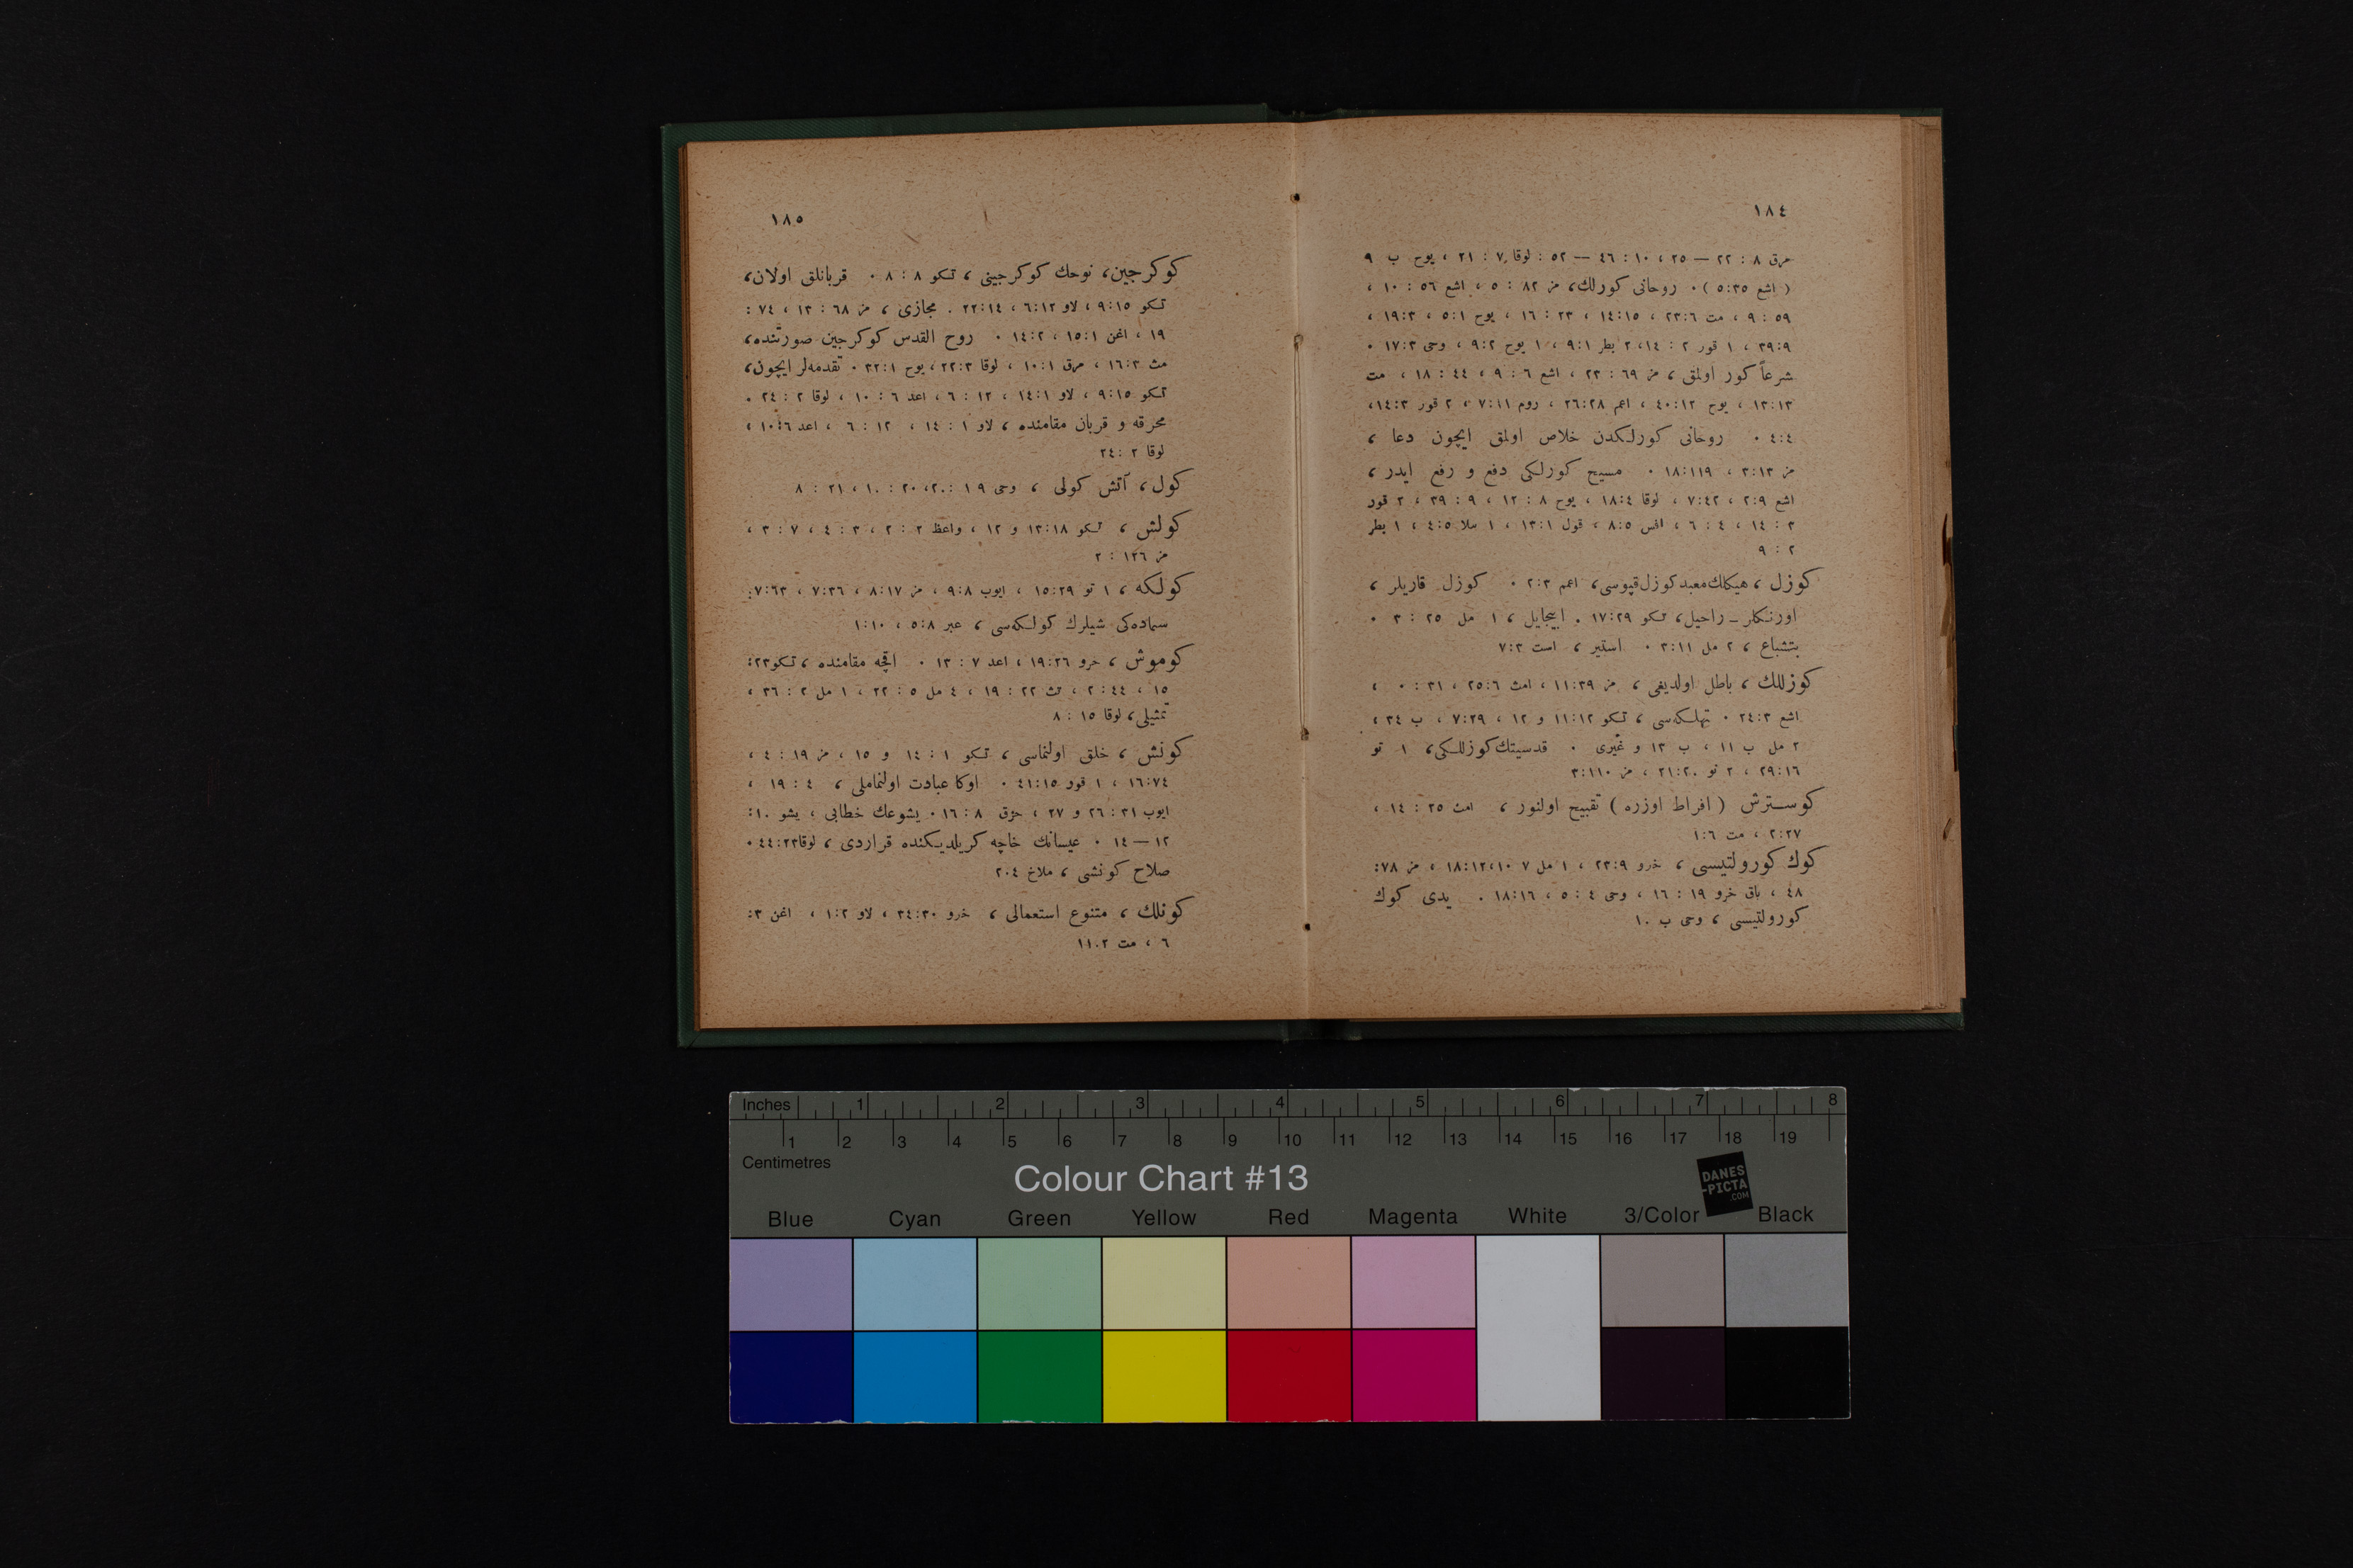 ١٨٤
مرق ٨ : ٢٢ — ٢٥ ، ١٠ : ٤٦ — ٥٢ : لوقا ٧ : ٢١ ، يوح ب ٩
( اشع ٣٥:٥ ) ٠ روحانى كورلك، مز ٨٢ : ٥ ، اشع ٥٦ : ١٠ ،
٥٩ : ٩ ، مت ٢٣:٦ ، ١٤:١٥ ، ٢٣ : ١٦ ، يوح ٥:١ ، ١٩:٣ ،
٣٩:٩ ، ١ قور ٢ : ١٤، ٢ بطر ٩:١ ، ١ يوح ٩:٢ ، وحى ١٧:٣ ٠
شرعاً كور اولمق ، مز ٦٩ : ٢٣ ، اشع ٦ : ٩ ، ٤٤ : ١٨ ، مت
١٣:١٣ ، يوح ٤٠:١٢ ، اعم ٢٦:٢٨ ، روم ٧:١١ ، ٢ قور ١٤:٣،
٤:٤ ٠ روحانى كورلكدن خلاص اولمق ايچون دعا ،
مز ٣:١٣ ، ١٨:١١٩ ٠ مسيح كورلكى دفع و رفع ايدر ،
اشع ٢:٩ ، ٧:٤٢ ، لوقا ١٨:٤ ، يوح ٨ : ١٢ ، ٩ : ٣٩ ، ٢ قور
٣ : ١٤ ، ٤ : ٦ ، افس ٨:٥ ، قول ١٣:١ ، ١ سلا ٤:٥ ، ١ بطر
٢ : ٩
كوزل ، هيكلك معبد كوزل قپوسى، اعم ٢:٣ ٠ كوزل قاريلر ،
اورنكلر ـ راحيل، تكو ١٧:٢٩ ٠ ابيجايل ، ١ مل ٢٥ : ٣ ٠
بتشباع ، ٢ مل ٢:١١ ٠ استير ، است ٧:٢
كوزللك ، باطل اولديغى ، مز ١١:٣٩ ، امث ٢٥:٦ ، ٣١ : ٠ ،
اشع ٢٤:٣ ٠ تهلكه‌سى ، تكو ١١:١٢ و ١٢ ، ٧:٣٩ ، ب ٣٤ ،
٢ مل ب ١١ ، ب ١٣ و غيرى ٠ قدسيتك كوزللكى، ١ تو
٢٩:١٦ ، ٢ تو ٢١:٢٠ ، مز ٣:١١٠
كوسترش ( افراط اوزره ) تقبيح اولنور ، امث ٢٥ : ١٤ ،
٢:٢٧ ، مت ١:٦
كوك كورولتيسى ، خرو ٢٣:٩ ، ١ مل ٧ ١٨:١٢،١٠ ، مز ٧٨:
٤٨ ، باق خرو ١٩ : ١٦ ، وحى ٤ : ٥ ، ١٨:١٦ ٠ يدى كوك
كورولتيسى ، وحى ب ١٠
١٨٥
كوكرجين، نوحك كوكرجينى ، تكو ٨ : ٨ ٠ قربانلق اولان،
تكو ٩:١٥ ، لاو ٦:١٢ ، ٢٢:١٤ . مجازى ، مز ٦٨ : ١٣ ، ٧٤ :
١٩ ، اغن ١٥:١ ، ١٤:٢ ٠ روح القدس كوكرجين صورتنده،
مت ١٦:٣ ، مرق ١٠:١ ، لوقا ٢٢:٣ ، يوح ٣٢:١ ٠ تقدمه‌لر ايچون،
تكو ٩:١٥ ، لاو ١٤:١ ، ١٢ : ٦ ، اعد ٦ : ١٠ ، لوقا ٢ : ٢٤ ٠
محرقه و قربان مقامنده ، لاو ١ : ١٤ ، ١٢ : ٦ ، اعد ١٠:٦ ،
لوقا ٢ : ٢٤
كول ، آتش كولى ، وحى ١٩ : ٢٠، ٢٠ : ١٠ ، ٢١ : ٨
كولش ، تكو ١٣:١٨ و ١٢ ، واعظ ٢ : ٢ ، ٣ : ٤ ، ٧ : ٣ ،
مز ١٢٦ : ٢
كولكه ، ١ تو ١٥:٢٩ ، ايوب ٩:٨ ، مز ٨:١٧ ، ٧:٣٦ ، ٧:٦٣:
سماده‌كى شيلرك كولكه‌سى ، عبر ٥:٨ ، ١:١٠
كوموش ، خرو ١٩:٢٦ ، اعد ٧ : ١٣ ٠ اقچه مقامنده ، تكو ٢٣:
١٥ ، ٢:٤٤ ، تث ٢٢ : ١٩ ، ٤ مل ٥ : ٢٢ ، ١ مل ٢ : ٣٦ ،
تمثيلى ، لوقا ١٥ : ٨
كونش ، خلق اولنماسى ، تكو ١ : ١٤ و ١٥ ، مز ١٩ : ٤ ،
١٦:٧٤ ، ١ قور ٤١:١٥ ٠ اوكا عبادت اولنماملى ، ٤ : ١٩ ،
ايوب ٣١ : ٢٦ و ٢٧ ، حزق ٨ : ١٦ ٠ يشوعك خطابى ، يشو ١٠:
١٢ — ١٤ ٠ عيسانك خاچه كريلديكنده قراردى ، لوقا ٤٤:٢٣ ٠
صلاح كونشى ، ملاخ ٢٠٤
كونلك ، متنوع استعمالى ، خرو ٣٤:٣٠ ، لاو ١:٢ ، اغن ٣:
٦ ، مت ١١٠٢
Inches 1 2 3 4 5 6 7 8
1 2 3 4 5 6 7 8 9 10 11 12 13 14 15 16 17 18 19
Centimetres
Colour Chart #13
DANES
-PICTA
.COM
Blue Cyan Green Yellow Red Magenta White 3/Color Black